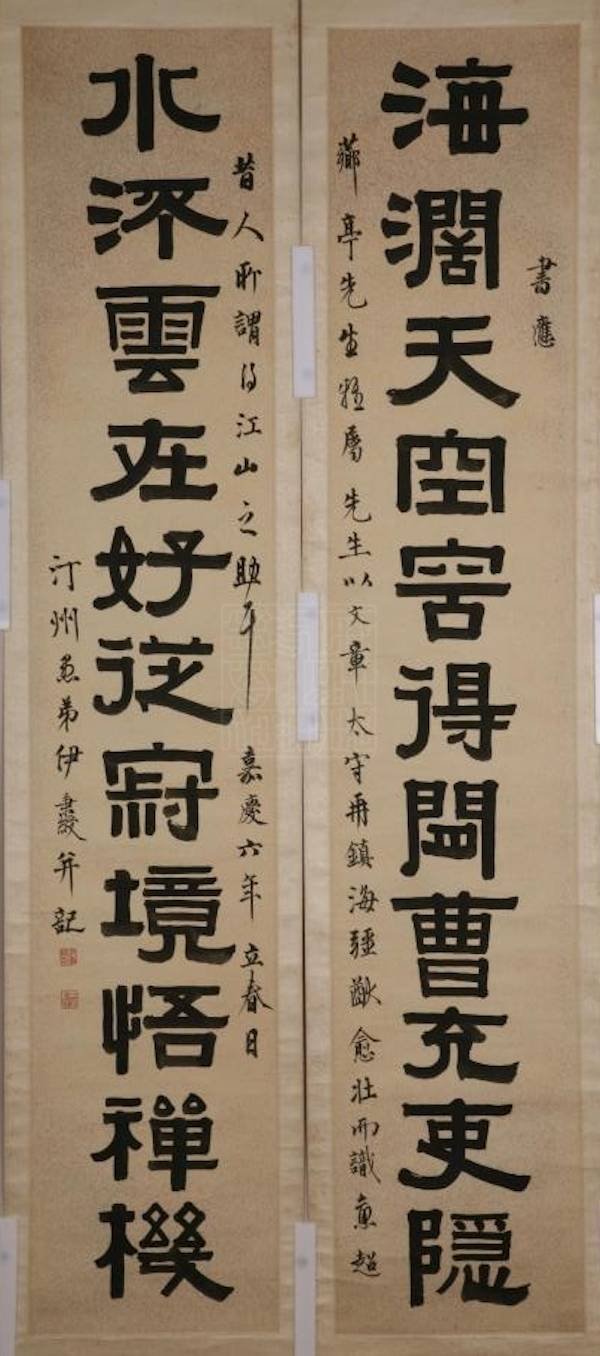 書應
海濶天空容得閒曹充吏隱
薌亭先生雅屬先生以文章太守再鎮海疆猷愈壯而識愈超
昔人所謂得江山之助耳嘉慶六年立春日
水流雲在好從寂境悟禪機
汀州愚弟伊秉綬并記